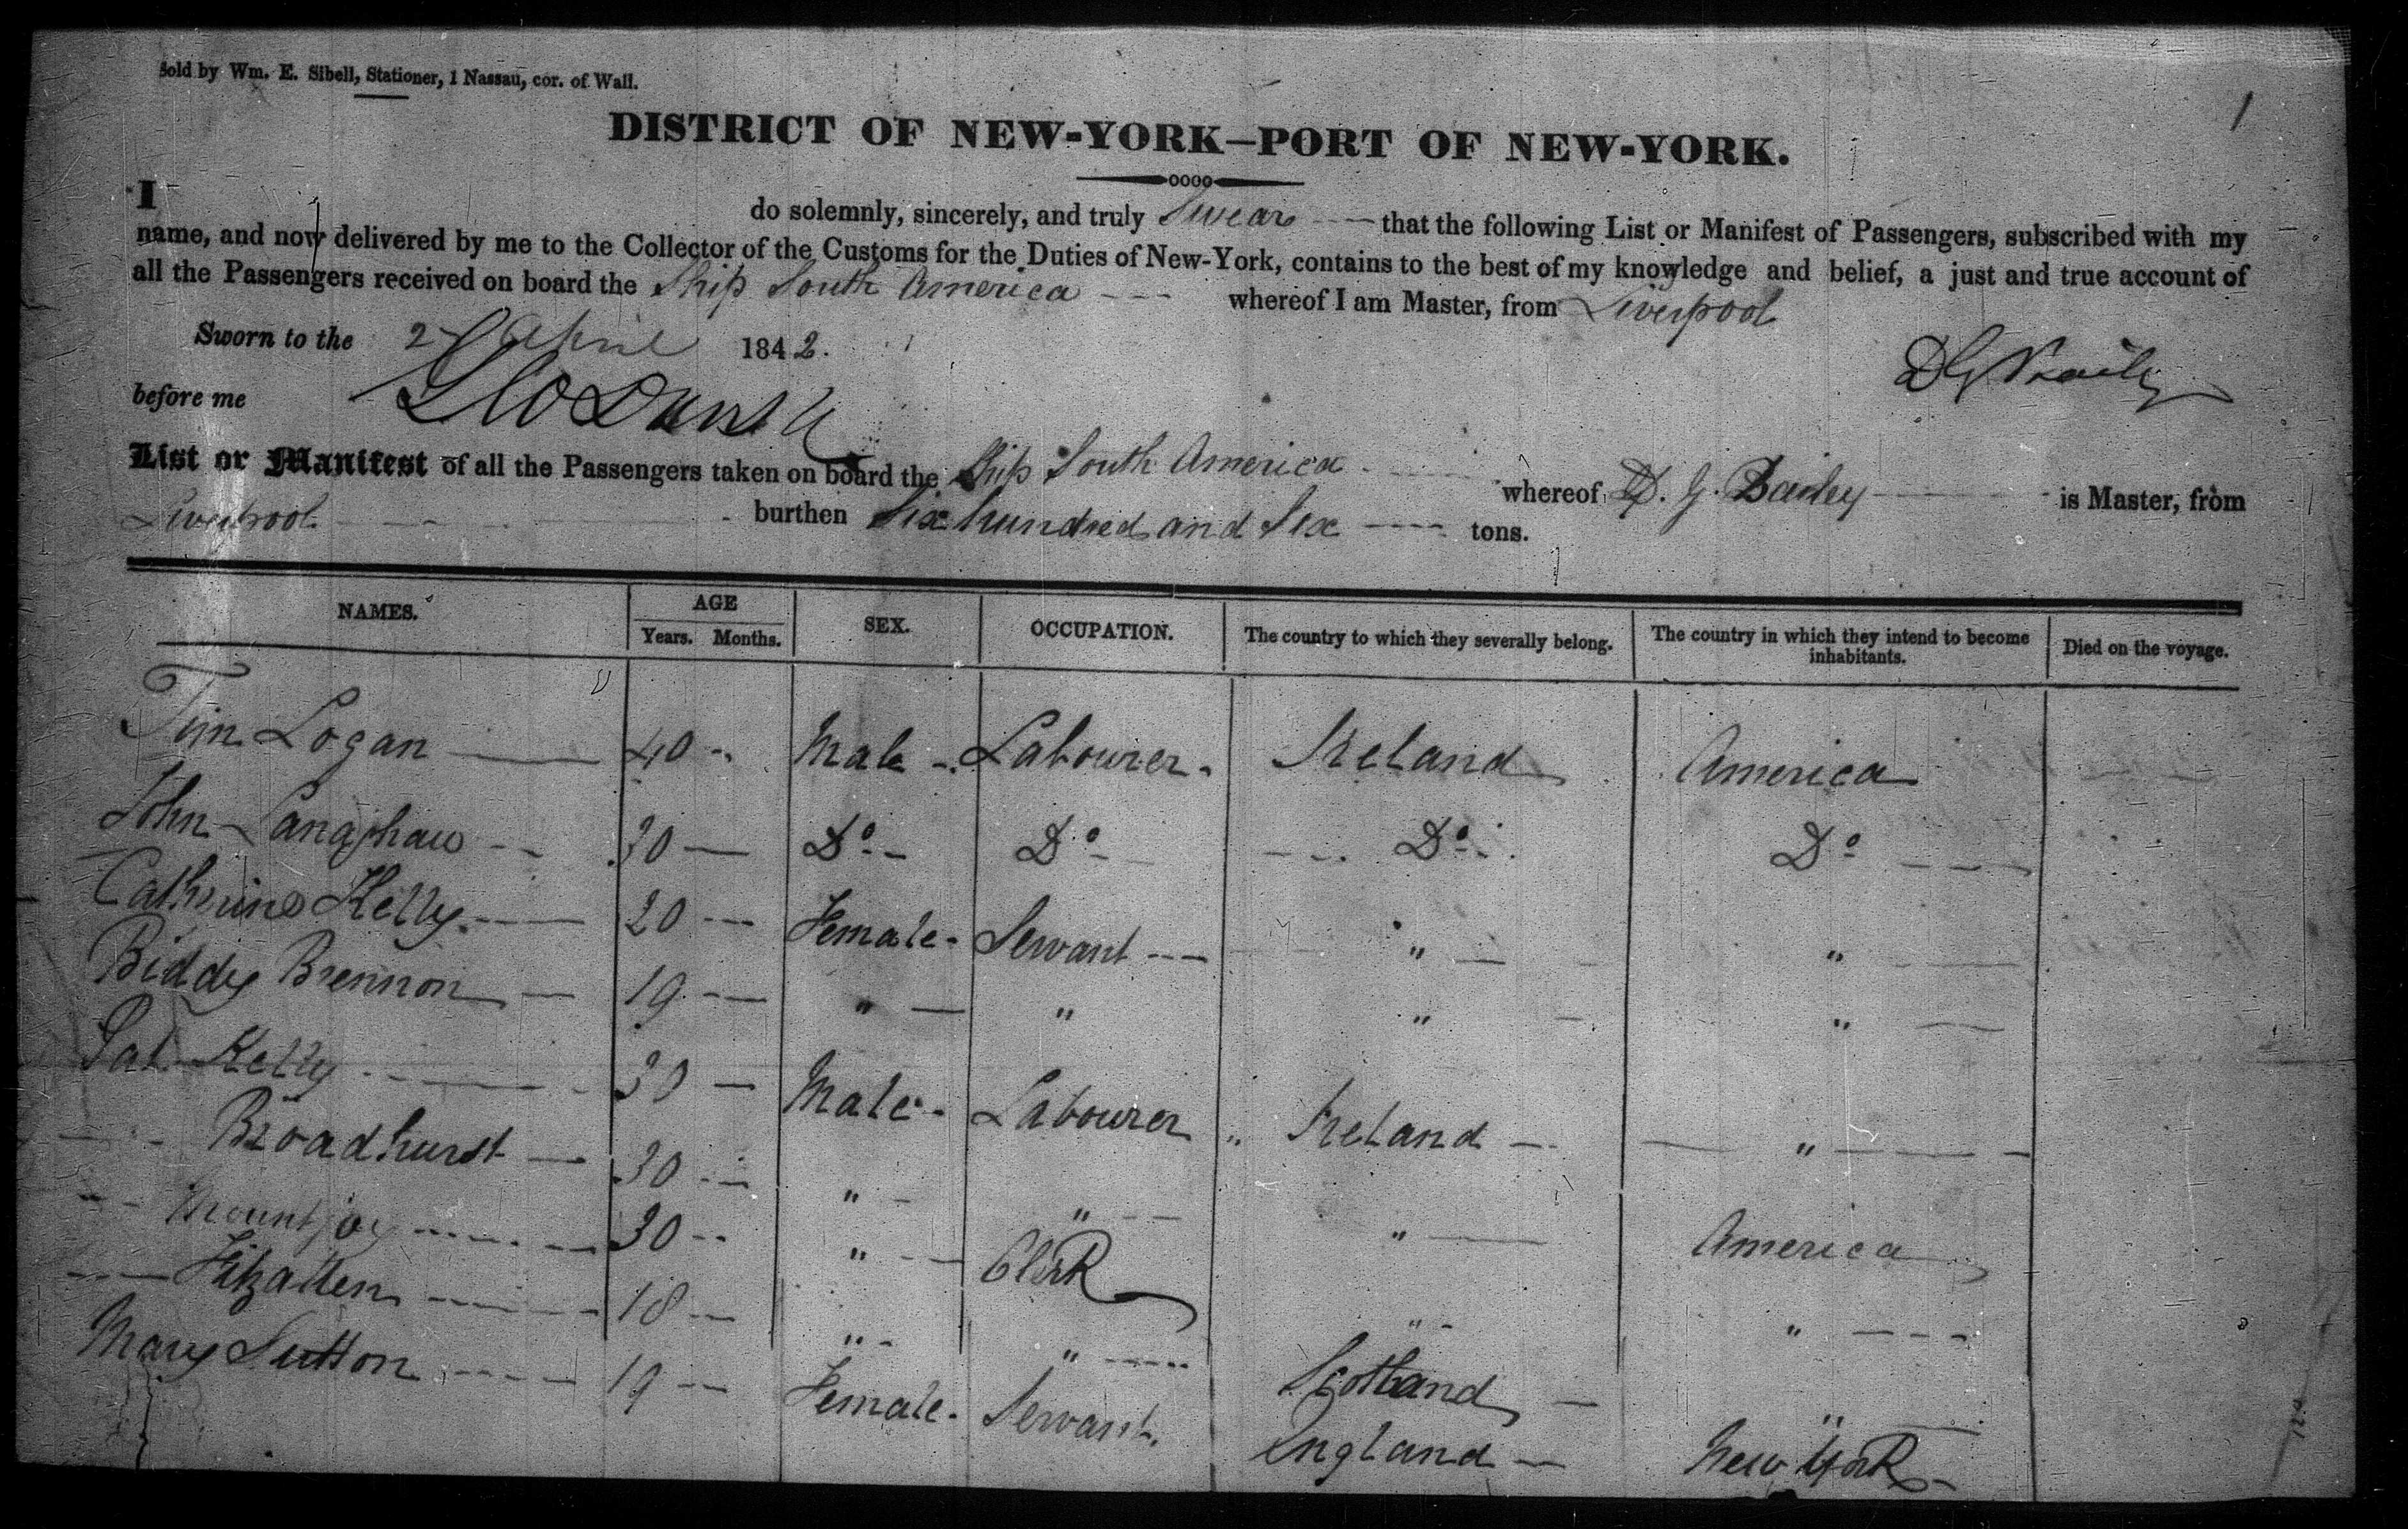 Sold by Wm. E. Sibell, Stationer, 1 Nassau, cor. of Wall.
1
DISTRICT OF NEW-YORK—PORT OF NEW-YORK.
I do solemnly, sincerely, and truly Swear that the following List or Manifest of Passengers, subscribed with my
name, and now delivered by me to the Collector of the Customs for the Duties of New-York, contains to the best of my knowledge and belief, a just and true account of
all the Passengers received on board the Ship South America whereof I am Master, from Liverpool
Sworn to the April 1842.
D G Bailey
before me
List or Manifest of all the Passengers taken on board the Ship South America whereof D. G. Bailey is Master, from
Liverpool burthen Six hundred and Six tons.
NAMES. AGE Years. Months. SEX. OCCUPATION. The country to which they severally belong. The country in which they intend to become inhabitants. Died on the voyage.
Tim Logan 40 Male Labourer Ireland America
John Langshaw 30 Do Do Do Do
Catherine Kelly 20 Female Servant " "
Biddy Brennon 19 " " " "
Pat Kelly 30 Male Labourer Ireland "
Broadhurst 30 " " " America
Mountjoy 30 " Clerk " "
Fitzallen 18 " " Scotland "
Mary Sutton 19 Female Servant England New York